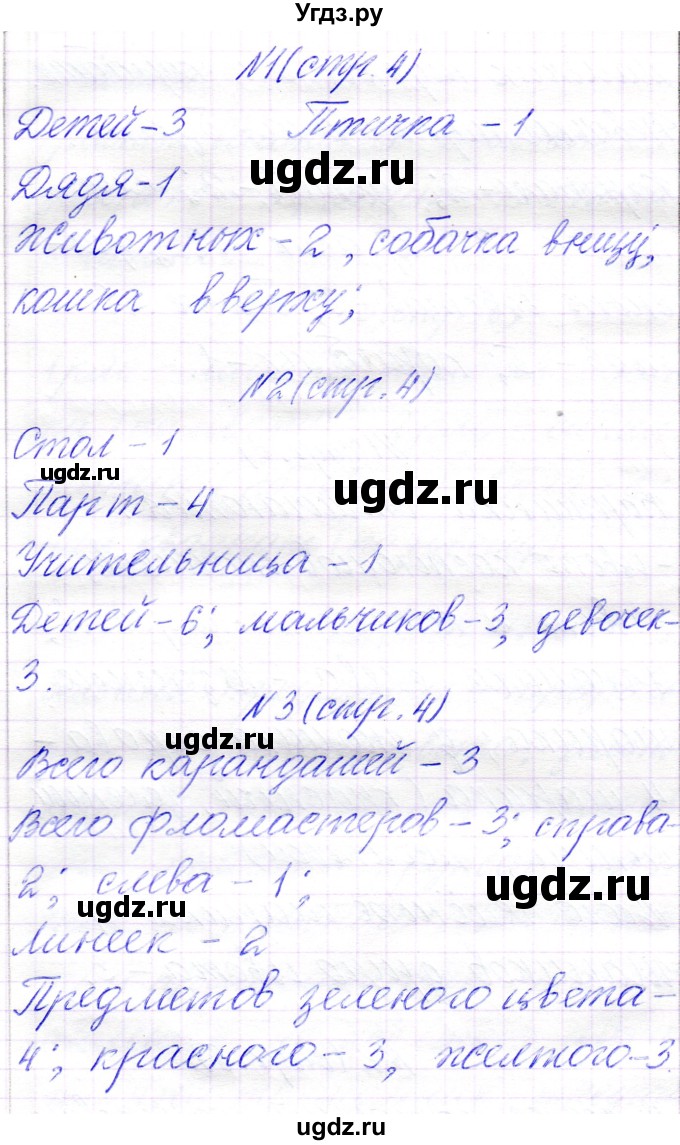 Угдз.ру
№1 (стр. 4)
Детей - 3 Птичка - 1
ugdz.ru
Дядя - 1
животных - 2, собачка внизу,
кошка вверху;
№2 (стр. 4)
Стол - 1
ugdz.ru
ugdz.ru
Парт - 4
Учительница - 1
Детей - 6; мальчиков - 3, девочек -
3.
№3 (стр. 4)
ugdz.ru
Всего карандашей - 3
Всего фломастеров - 3; справа -
2; слева - 1;
ugdz.ru
ugdz.ru
Линеек - 2
Предметов зеленого цвета -
4; красного - 3, желтого - 3.
ugdz.ru